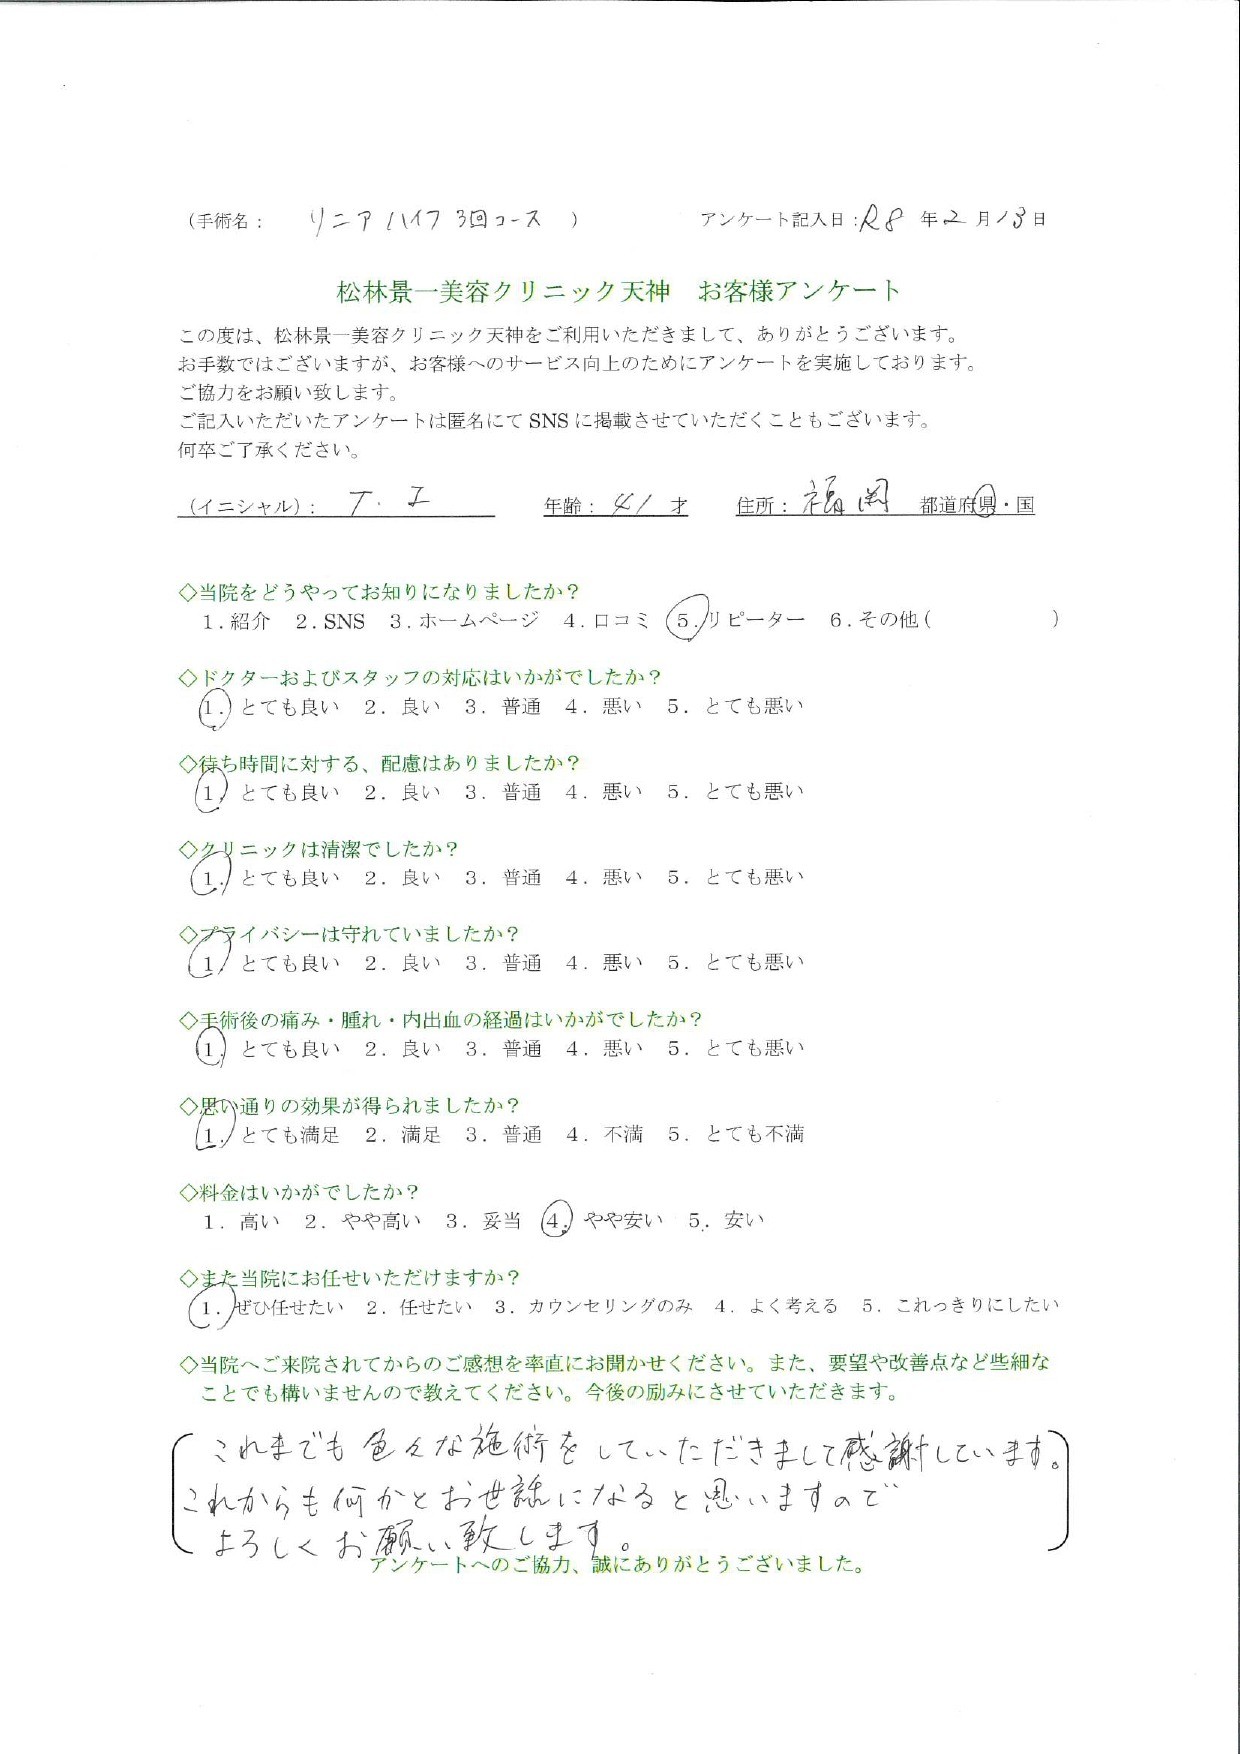 （手術名： リニアハイフ 3回コース ） アンケート記入日：R8 年 2 月 13 日
松林景一美容クリニック天神 お客様アンケート
この度は、松林景一美容クリニック天神をご利用いただきまして、ありがとうございます。
お手数ではございますが、お客様へのサービス向上のためにアンケートを実施しております。
ご協力をお願い致します。
ご記入いただいたアンケートは匿名にて SNS に掲載させていただくこともございます。
何卒ご了承ください。
（イニシャル）： T. I 年齢： 41 才 住所： 福岡 都道府県・国
◇当院をどうやってお知りになりましたか？
1.紹介 2.SNS 3.ホームページ 4.口コミ 5.リピーター 6.その他( )
◇ドクターおよびスタッフの対応はいかがでしたか？
1. とても良い 2. 良い 3. 普通 4. 悪い 5. とても悪い
◇待ち時間に対する、配慮はありましたか？
1. とても良い 2. 良い 3. 普通 4. 悪い 5. とても悪い
◇クリニックは清潔でしたか？
1. とても良い 2. 良い 3. 普通 4. 悪い 5. とても悪い
◇プライバシーは守れていましたか？
1. とても良い 2. 良い 3. 普通 4. 悪い 5. とても悪い
◇手術後の痛み・腫れ・内出血の経過はいかがでしたか？
1. とても良い 2. 良い 3. 普通 4. 悪い 5. とても悪い
◇思い通りの効果が得られましたか？
1. とても満足 2. 満足 3. 普通 4. 不満 5. とても不満
◇料金はいかがでしたか？
1. 高い 2. やや高い 3. 妥当 4. やや安い 5. 安い
◇また当院にお任せいただけますか？
1. ぜひ任せたい 2. 任せたい 3. カウンセリングのみ 4. よく考える 5. これっきりにしたい
◇当院へご来院されてからのご感想を率直にお聞かせください。また、要望や改善点など些細な
ことでも構いませんので教えてください。今後の励みにさせていただきます。
これまでも色々な施術をしていただきまして感謝しています。
これからも何かとお世話になると思いますので
よろしくお願い致します。
アンケートへのご協力、誠にありがとうございました。